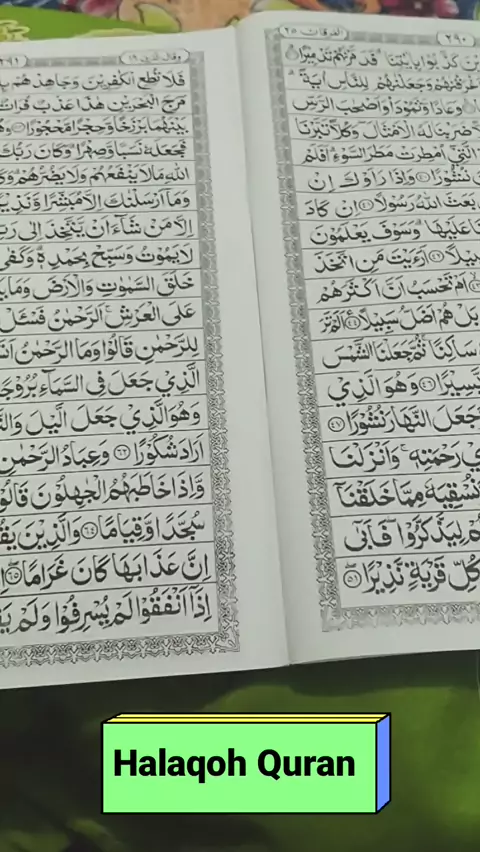 ٢٩٠
الفرقان ٢٥
كَذَّبُوا بِاٰيٰتِنَا ۗ فَدَمَّرْنٰهُمْ تَدْمِيْرًا ۗ
اَغْرَقْنٰهُمْ وَجَعَلْنٰهُمْ لِلنَّاسِ اٰيَةً ۗ
وَعَادًا وَّثَمُوْدَا۟ وَاَصْحٰبَ الرَّسِّ
ضَرَبْنَا لَهُ الْاَمْثَالَ وَكُلًّا تَبَّرْنَا
الَّتِيْٓ اُمْطِرَتْ مَطَرَ السَّوْءِ ۗ اَفَلَمْ
نُشُوْرًا ۝٤٠ وَاِذَا رَاَوْكَ اِنْ
بَعَثَ اللّٰهُ رَسُوْلًا ۝٤١ اِنْ كَادَ
عَلَيْهَا ۗ وَسَوْفَ يَعْلَمُوْنَ
سَبِيْلًا ۝٤٢ اَرَءَيْتَ مَنِ اتَّخَذَ
اَمْ تَحْسَبُ اَنَّ اَكْثَرَهُمْ
بَلْ هُمْ اَضَلُّ سَبِيْلًا ۝٤٤ اَلَمْ تَرَ
سَاكِنًا ۚ ثُمَّ جَعَلْنَا الشَّمْسَ
يَّسِيْرًا ۝٤٦ وَهُوَ الَّذِيْ
وَجَعَلَ النَّهَارَ نُشُوْرًا ۝٤٧
رَحْمَتِهٖ ۚ وَاَنْزَلْنَا
وَّنُسْقِيَهٗ مِمَّا خَلَقْنَآ
لِيَذَّكَّرُوْا ۖ فَاَبٰىٓ
كُلِّ قَرْيَةٍ نَّذِيْرًا ۝٥١
وقال الذين ١٩
٢٩١
فَلَا تُطِعِ الْكٰفِرِيْنَ وَجَاهِدْهُمْ
مَرَجَ الْبَحْرَيْنِ هٰذَا عَذْبٌ فُرَاتٌ
بَيْنَهُمَا بَرْزَخًا وَّحِجْرًا مَّحْجُوْرًا ۝٥٣
فَجَعَلَهٗ نَسَبًا وَّصِهْرًا ۗ وَكَانَ رَبُّكَ
اللّٰهِ مَا لَا يَنْفَعُهُمْ وَلَا يَضُرُّهُمْ ۗ
وَمَآ اَرْسَلْنٰكَ اِلَّا مُبَشِّرًا وَّنَذِيْرًا
اِلَّا مَنْ شَآءَ اَنْ يَّتَّخِذَ اِلٰى
لَا يَمُوْتُ وَسَبِّحْ بِحَمْدِهٖ ۗ وَكَفٰى
خَلَقَ السَّمٰوٰتِ وَالْاَرْضَ وَمَا
عَلَى الْعَرْشِ ۚ اَلرَّحْمٰنُ فَسْـَٔلْ
لِلرَّحْمٰنِ قَالُوْا وَمَا الرَّحْمٰنُ
الَّذِيْ جَعَلَ فِى السَّمَآءِ بُرُوْجًا
وَهُوَ الَّذِيْ جَعَلَ الَّيْلَ
اَرَادَ شُكُوْرًا ۝٦٢ وَعِبَادُ الرَّحْمٰنِ
وَّاِذَا خَاطَبَهُمُ الْجٰهِلُوْنَ قَالُوْا
سُجَّدًا وَّقِيَامًا ۝٦٤ وَالَّذِيْنَ
اِنَّ عَذَابَهَا كَانَ غَرَامًا ۝٦٥
اِذَآ اَنْفَقُوْا لَمْ يُسْرِفُوْا وَلَمْ
Halaqoh Quran